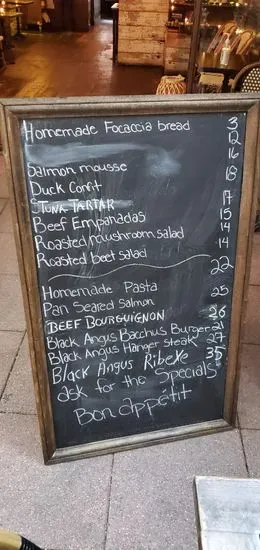 Homemade Focaccia bread 3
12
Salmon mousse 16
Duck Confit 18
TUNA TARTAR 17
Beef Empanadas 15
Roasted mushroom salad 14
Roasted beet salad 14
Homemade Pasta 22
Pan Seared Salmon 25
BEEF BOURGUIGNON 26
Black Angus Bacchus Burger 21
Black Angus Hanger Steak 27
Black Angus Ribeye 35
ask for the Specials
Bon appétit